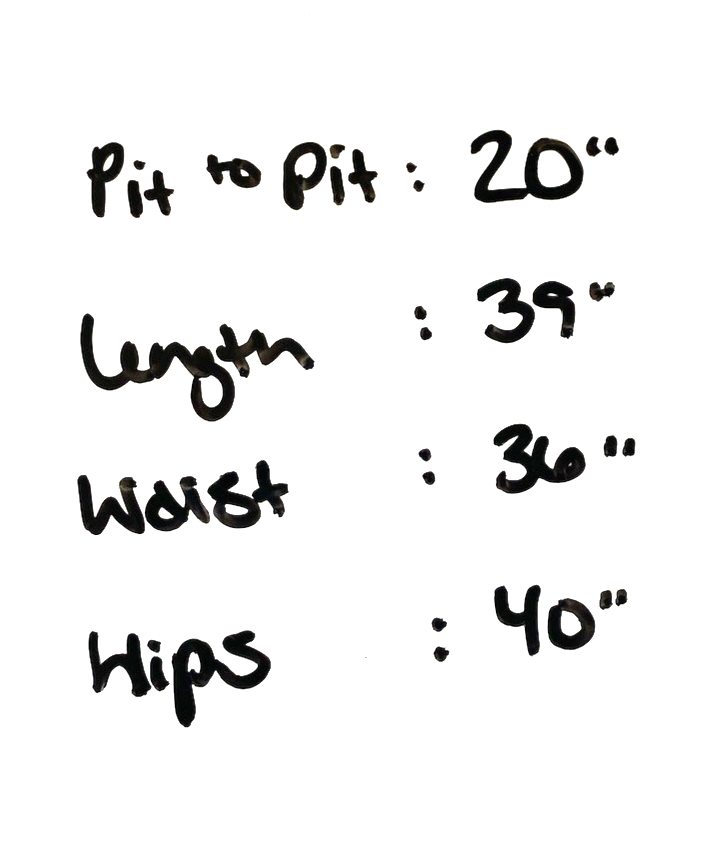 Pit to Pit : 20"
Length : 39"
Waist : 36"
Hips : 40"